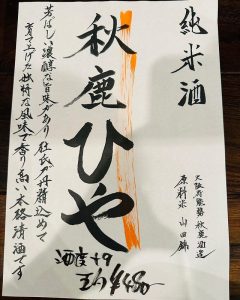 純米酒
大阪府能勢 秋鹿酒造
原料米 山田錦
秋鹿ひや
芳ばしい濃醇な旨味があり杜氏が丹精込めて
育て上げた独特な風味で香り高い本格清酒です